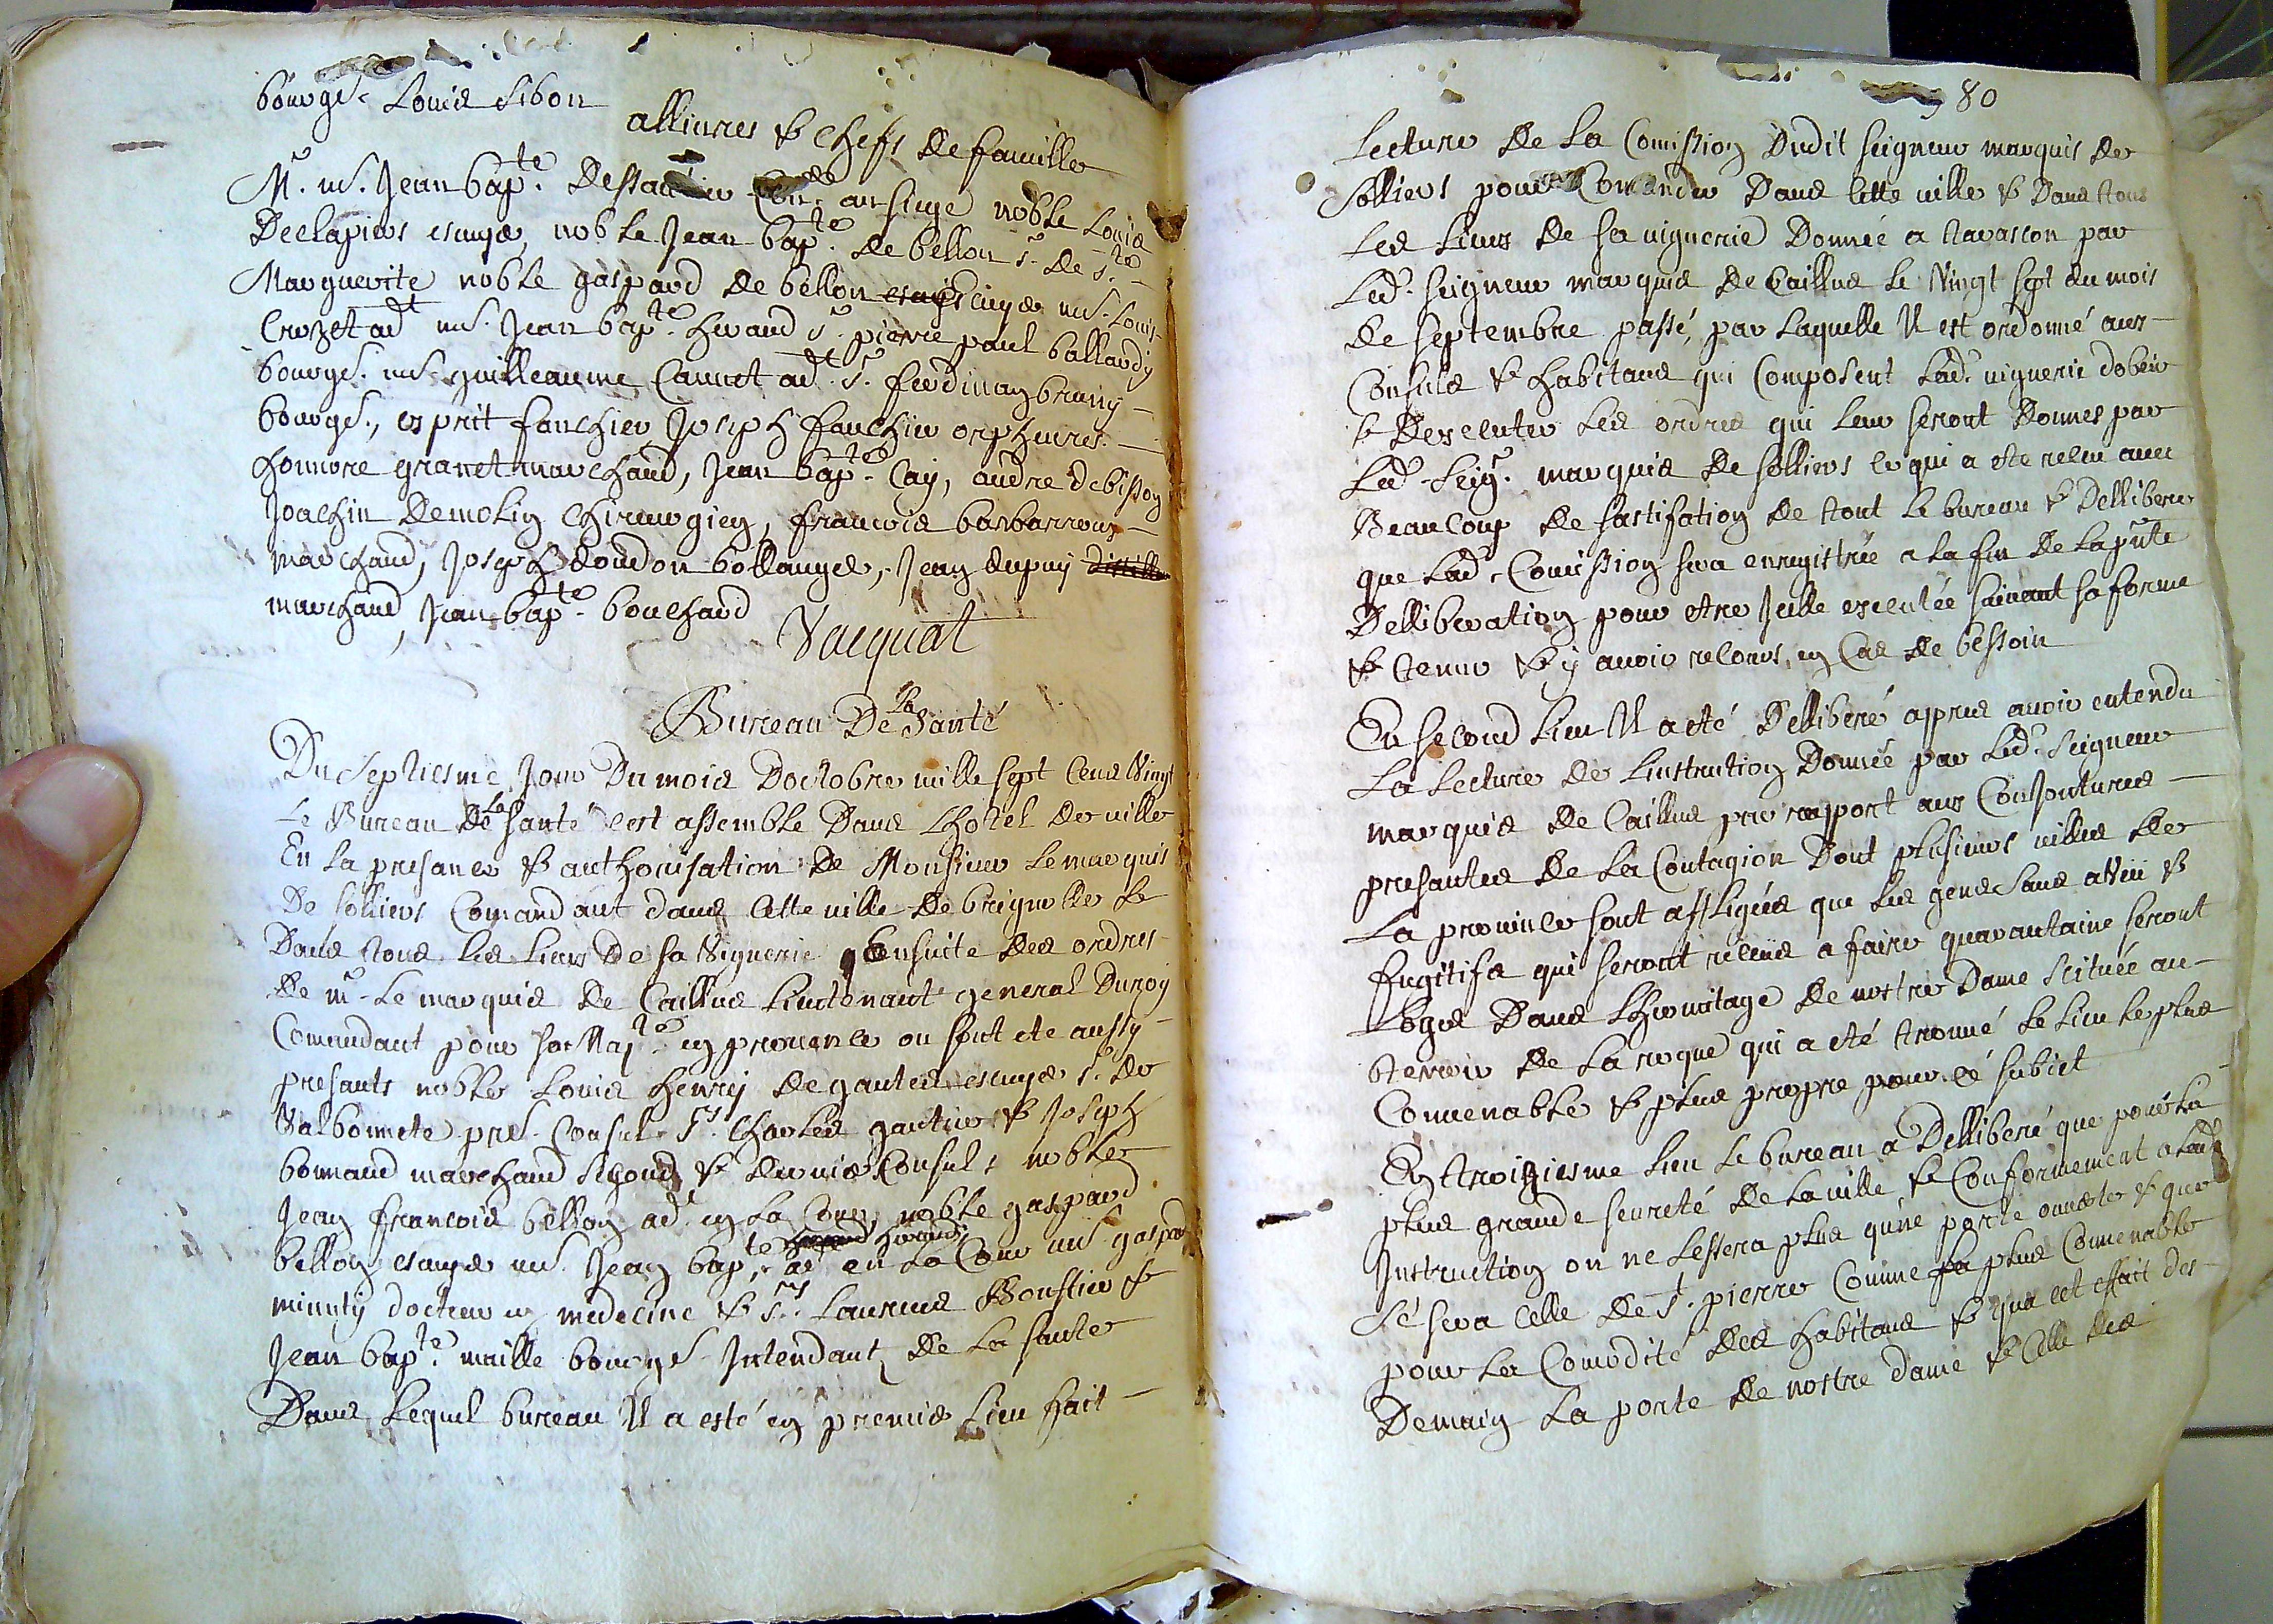 bourgs. Louis Sibon
allivres & Chefs de famille
Mr. me. Jean bapte. au siege noble Louis
Declapiers escuyer, noble Jean bapte. de bellon sr. de ste.
Marguerite noble gaspard de bellon escuyer me. Louis
Crozet adt. me. Jean bapte. heraud sr. pierre paul ballardy
bourgs. me. guilleaume Cannet adt. sr. ferdinan bruny
bourgs., esprit fauchier Joseph fauchier orphevres.
honnore granet marchand, Jean bapte. Cay, andre debisson
Joachin demolin Chirurgien, francois barbarroux
marchand, Joseph doudon bollanger, Jean dupuy
marchand, Jean bapte. bouchard
Vacquat
Bureau De la Santé
Du septiesme Jour Du mois Doctobre mille sept Cens Vingt
Le Bureau De la santé cest assemblé Dans Lhotel de ville
En la presance & authorisation De Monsieur le marquis
De solliers Comandant dans Cette ville de brignolle &
Dans tous les lieux De sa Viguerie ensuite des ordres
de mr. Le marquis De Caillus Lieutenant general Du roy
Comandant pour sa Majte. en provence ou sont ete aussy
presants noble Louis henry de gautier escuyer sr. de
Valbonnete per. Consul srs. Charles gautier & Joseph
bonnaud marchand segond & dernier Consuls noble
Jean francois bellon adt. en la Cour, noble gaspard
bellon escuyer me. Jean bapte. heraud ad en la Cour me. gaspard
minuty docteur en medecine & srs. Laurens Boustier &
Jean bapte. maille bourgs. Intendant de la sante
Dans Lequel bureau Il a esté en premier lieu fait
80
Lecture De La Comission Dudit seigneur marquis de
solliers pour Comander Dans Cette ville & Dans tous
Les Lieux de sa viguerie Donnée a tarascon par
Led. seigneur marquis de Caillus le Vingt sept du mois
de septembre passé, par Laquelle Il est ordonné aux
Consuls & habitans qui Composent lad. viguerie dobeir
& Dexecuter Les ordres qui leur seront Donnes par
Led. seigr. marquis de solliers ce qui a ete receu avec
Beaucoup de sastifation de tout le bureau & Delliberé
que lad. Comission sera enregistrée a la fin de la pnte
Delliberation pour etre Icelle executée suivant sa forme
& teneur & y avoir recours, en Cas de bessoin
En second lieu Il a eté Delliberé appres avoir entendu
La Lecture de Linstrution Donnée par Led. seigneur
marquis de Caillus par rapport aux Conjontures
presantes de La Contagion Dont plusieurs villes de
La province sont affligées que les gens sans aveü &
fugitifs qui seront receus a faire quarantaine seront
Loges Dans Lhermitage de nostre Dame scituée au
terroir de La roque qui a eté trouvé le lieu le plus
Convenable & plus propre pour cé subiet
En troiziesme lieu Le bureau a Delliberé que pour la
plus grande seureté de la ville & Conformement a lad.
Instruction on ne Lessera plus qune porte ouverte & que
Sé sera Celle de st. pierre Comme la plus Convenable
pour La Comodité des habitans & qua cet effait des
Demain La porte de nostre dame & Celle des